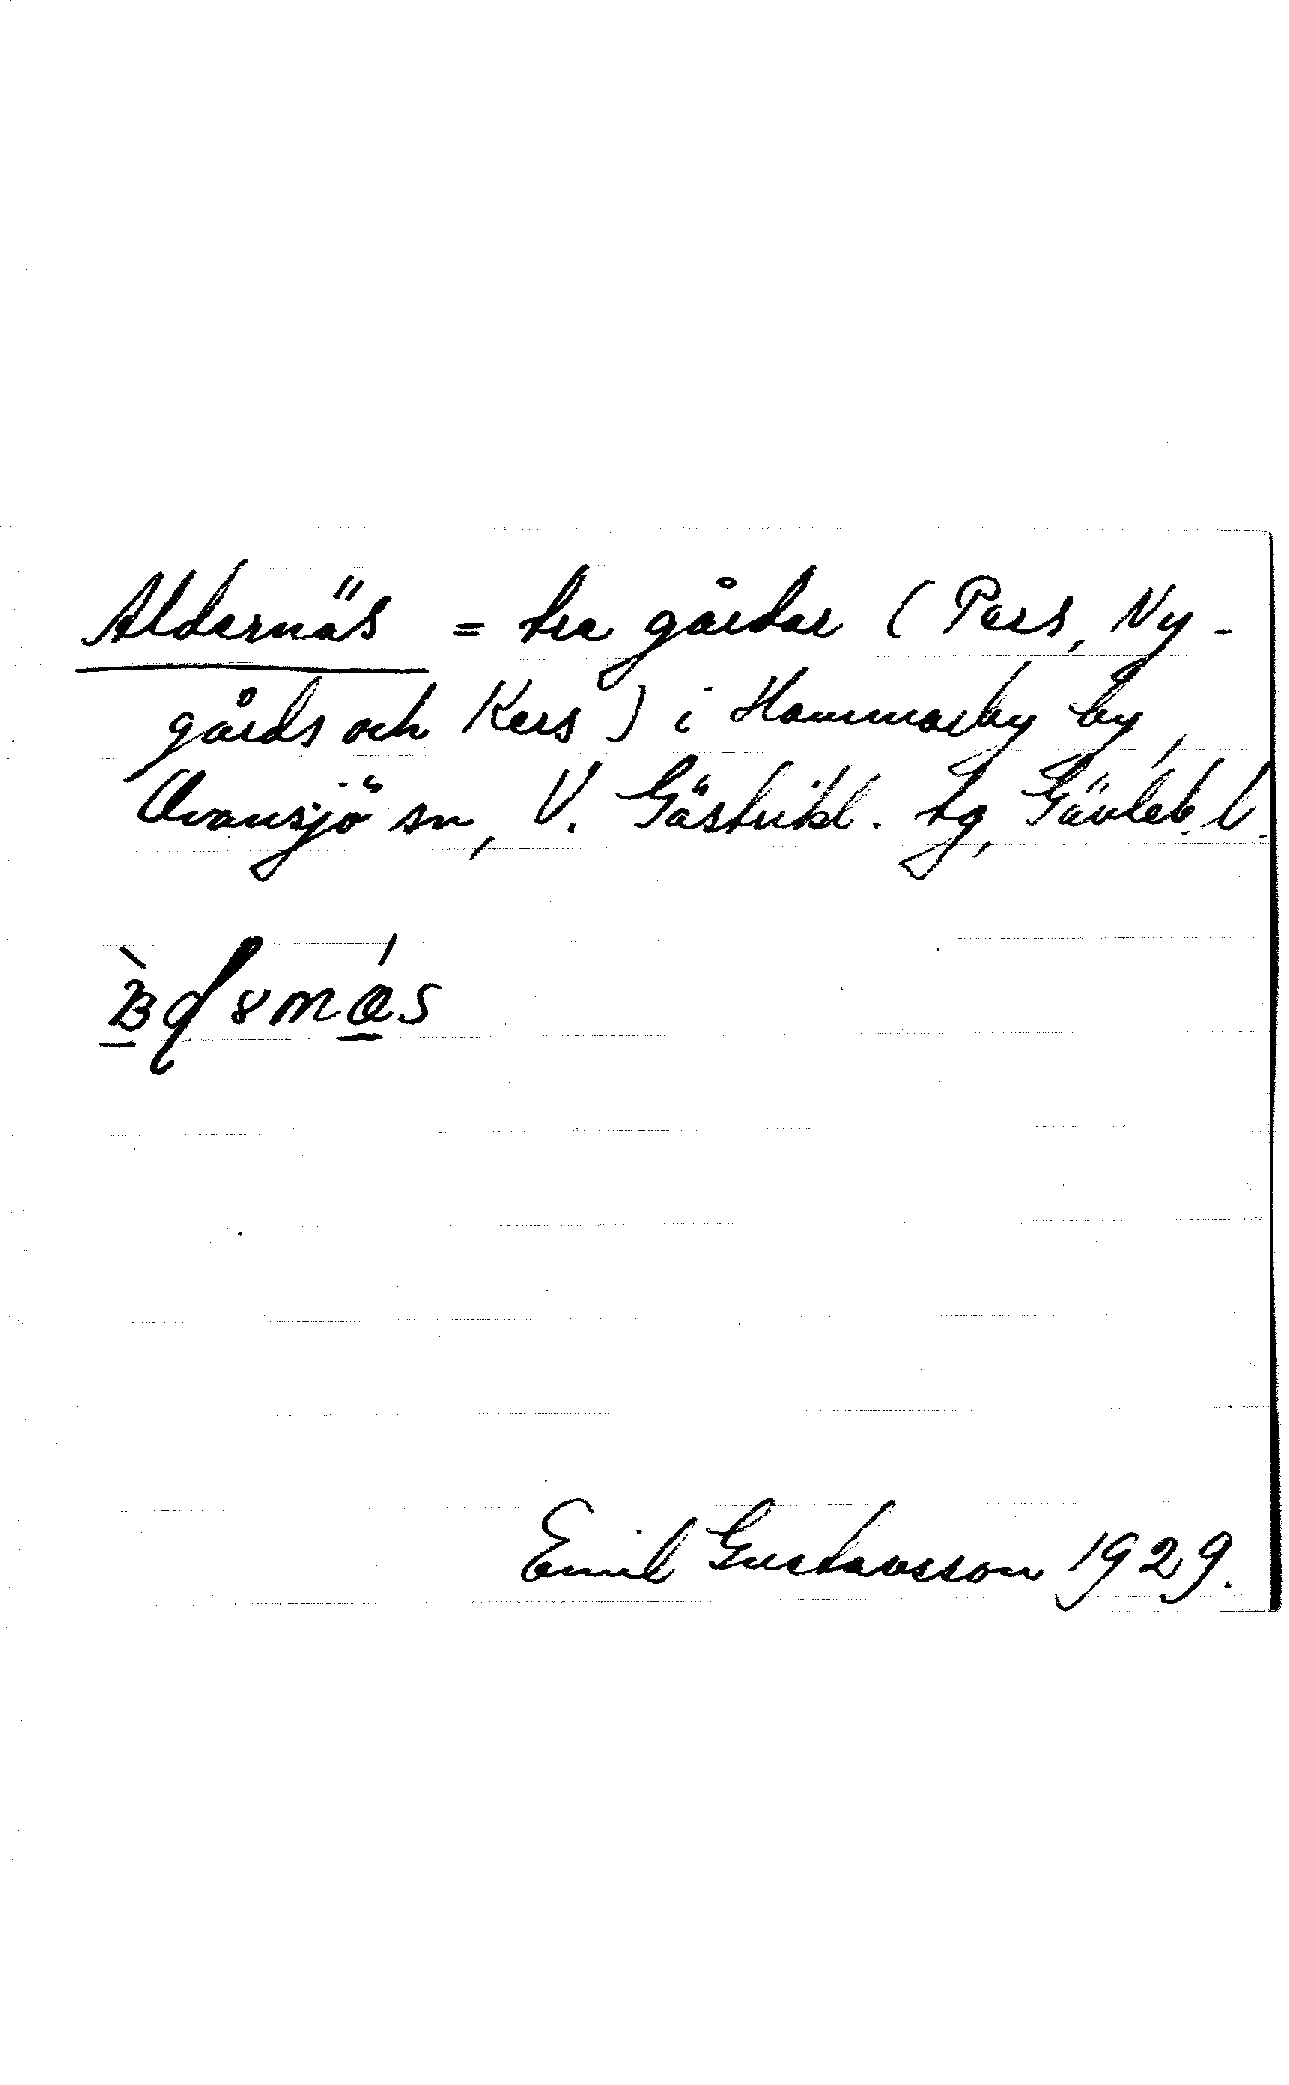 Aldernäs = tre gårdar (Pers, Ny-
gårds och Kers) i Hammarby by,
Ovansjö sn, V. Gästrikl. tg, Gävleb. l.
Emil Gustavsson 1929.